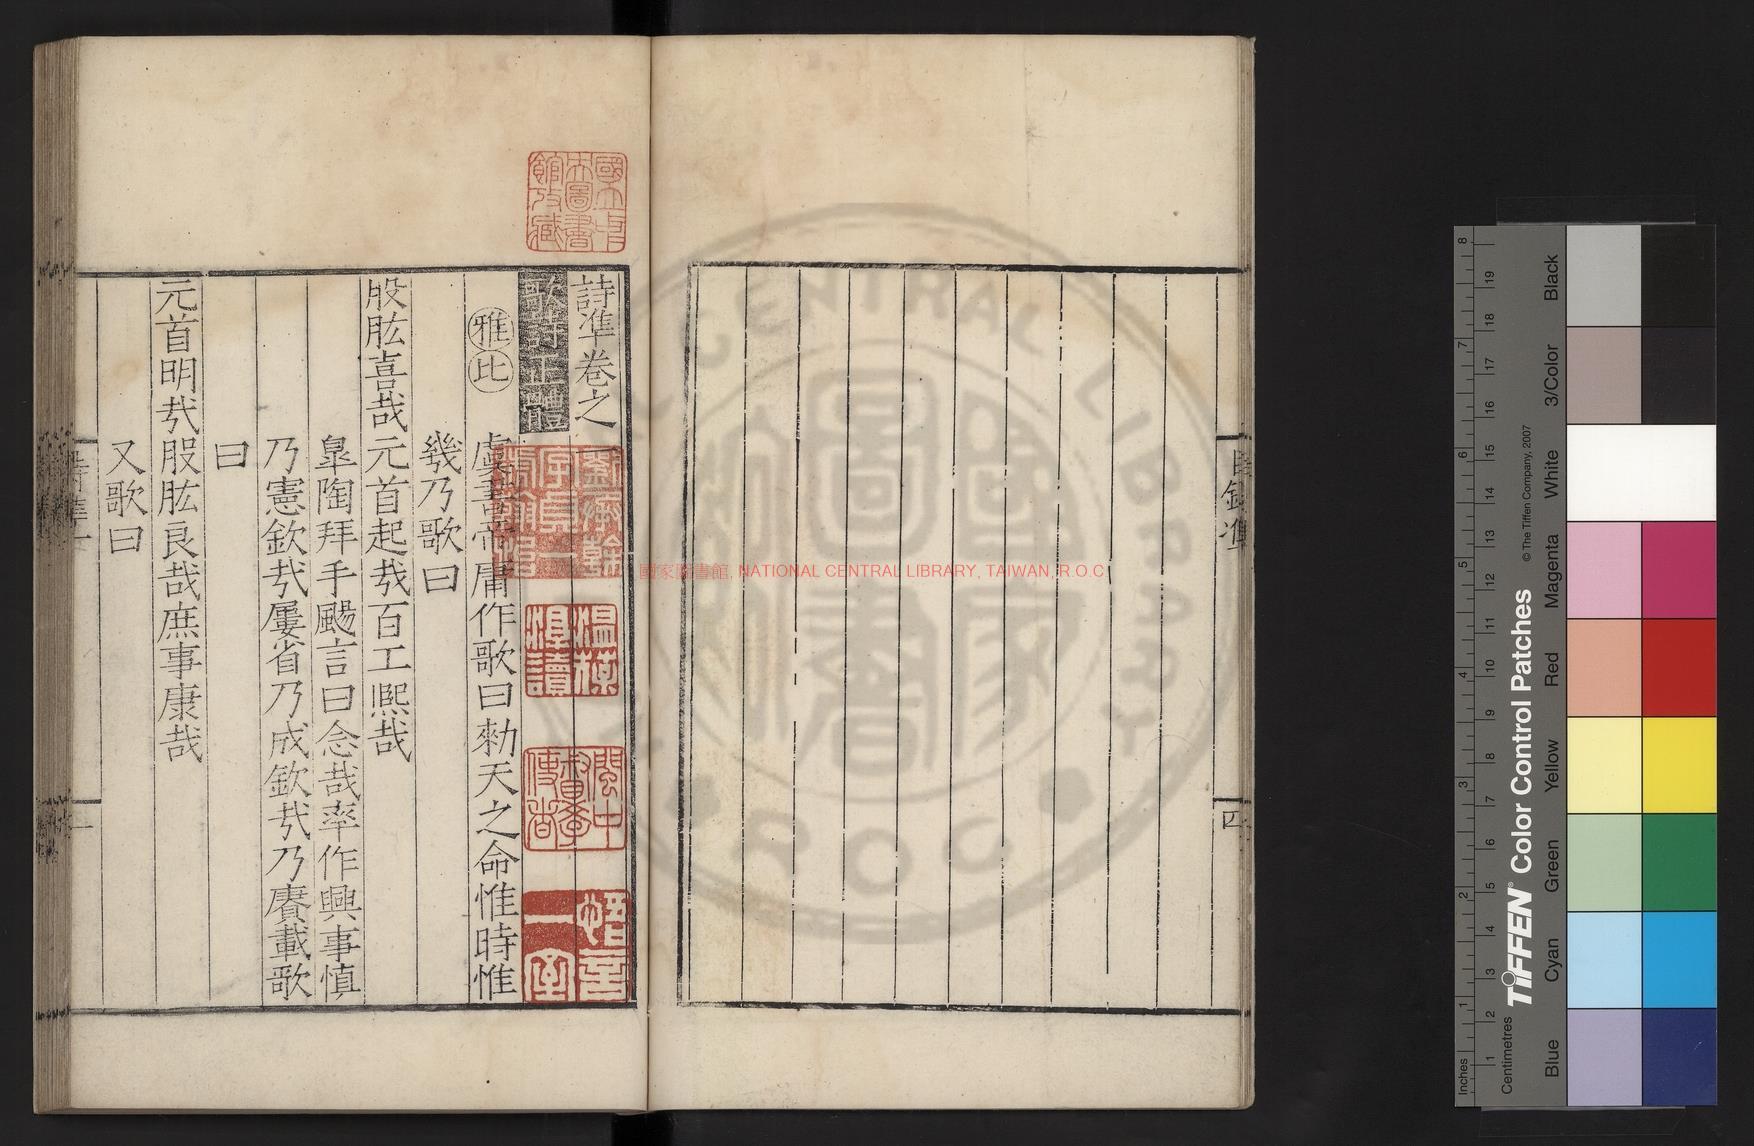 詩準卷之一
歌詩正體
雅比
虞書帝庸作歌曰勑天之命惟時惟
幾乃歌曰
股肱喜哉元首起㢤百工熈哉
臯陶拜手颺言曰念哉率作興事慎
乃憲欽㢤屢省乃成欽㢤乃賡載歌
曰
元首明㢤股肱良哉庶事康哉
又歌曰
國立中央圖書館收藏
國家圖書館, NATIONAL CENTRAL LIBRARY, TAIWAN, R.O.C
CENTRAL LIBRARY
R O C
四
TIFFEN® Color Control Patches
© The Tiffen Company, 2007
Inches
Centimetres
Blue Cyan Green Yellow Red Magenta White 3/Color Black
1 2 3 4 5 6 7 8
1 2 3 4 5 6 7 8 9 10 11 12 13 14 15 16 17 18 19